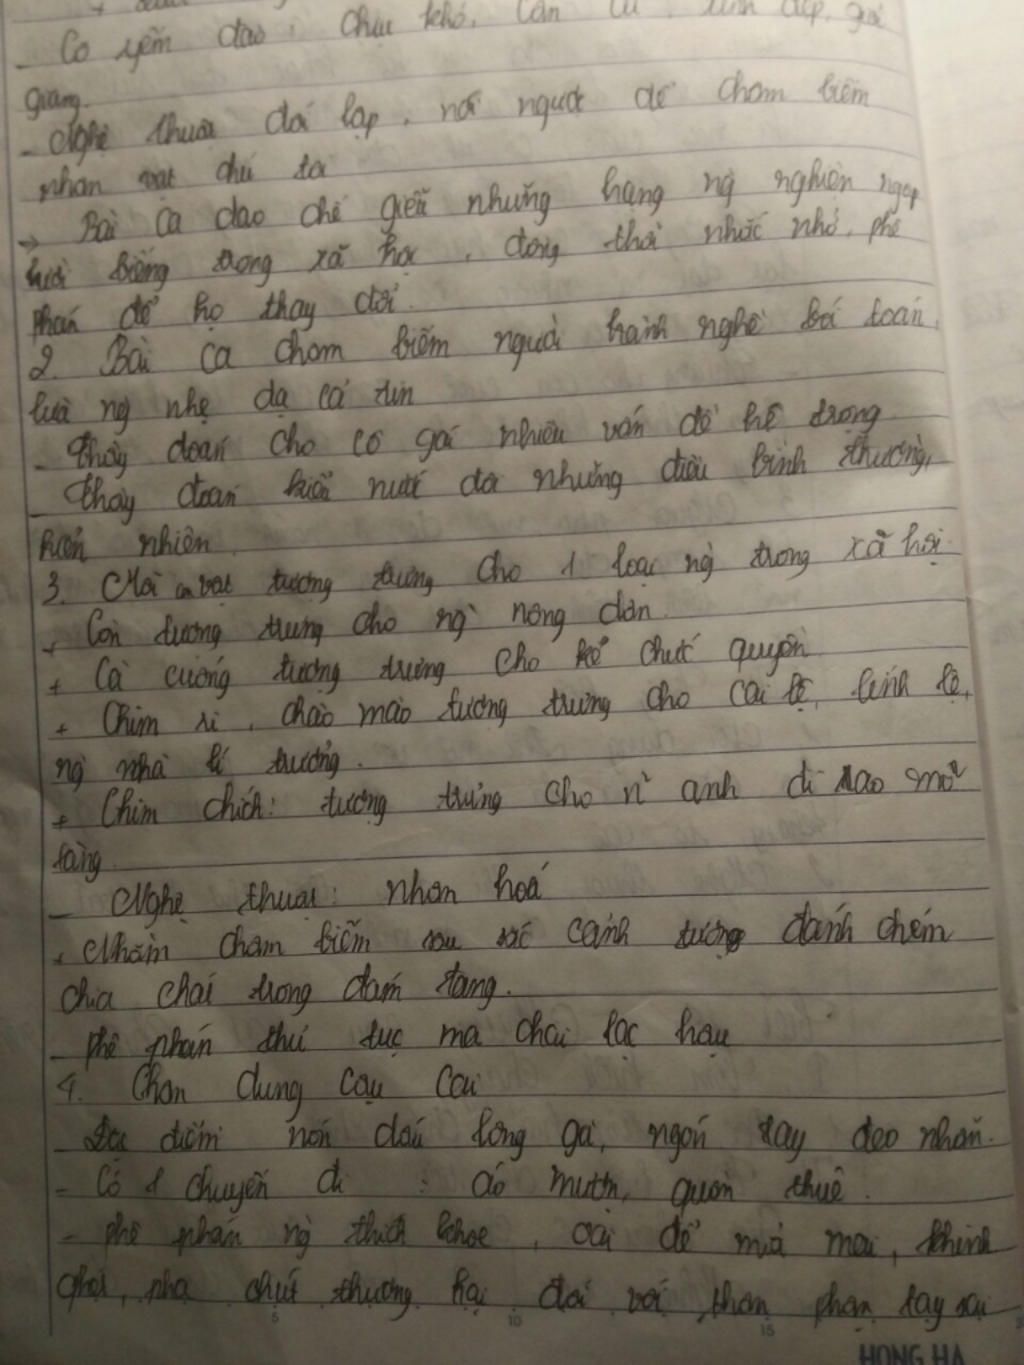 - Cô yếm đào: chịu khó, cần cù, xinh đẹp, giỏi
giang.
- Nghệ thuật đối lập, nói ngược để châm biếm
nhân vật chú tôi
→ Bài ca dao chế giễu những hạng ng` nghiện ngập
lười biếng trong xã hội, đồng thời nhắc nhở, phê
phán để họ thay đổi.
2. Bài ca châm biếm người hành nghề bói toán,
lừa ng` nhẹ dạ cả tin
- Thầy đoán cho cô gái nhiều vấn đề hệ trọng
- Thầy đoán kiểu nước đôi những điều bình thường,
hiển nhiên
3. Mỗi con vật tượng trưng cho 1 loại ng` trong xã hội.
+ Cò tượng trưng cho ng` nông dân.
+ Cà cuống tượng trưng cho kẻ chức quyền
+ Chim ri, chào mào tượng trưng cho cai lệ, lính lệ,
ng` nhà lí trưởng.
+ Chim chích: tượng trưng cho n~ anh đi rao mõ
làng
- Nghệ thuật: nhân hoá
+ Nhằm châm biếm cảnh tượng đánh chén
chia chác trong đám tang.
- Phê phán thủ tục ma chay lạc hậu
4. Chân dung cậu cai
- Đặc điểm: nón dấu lông gà, ngón tay đeo nhẫn.
- Có 1 chuyến đi: áo mượn, quần thuê.
- Phê phán ng` thích khoe, oai để mỉa mai, khinh
ghét, pha chút thương hại đối với thân phận tay sai
5 10 15
HONG HA